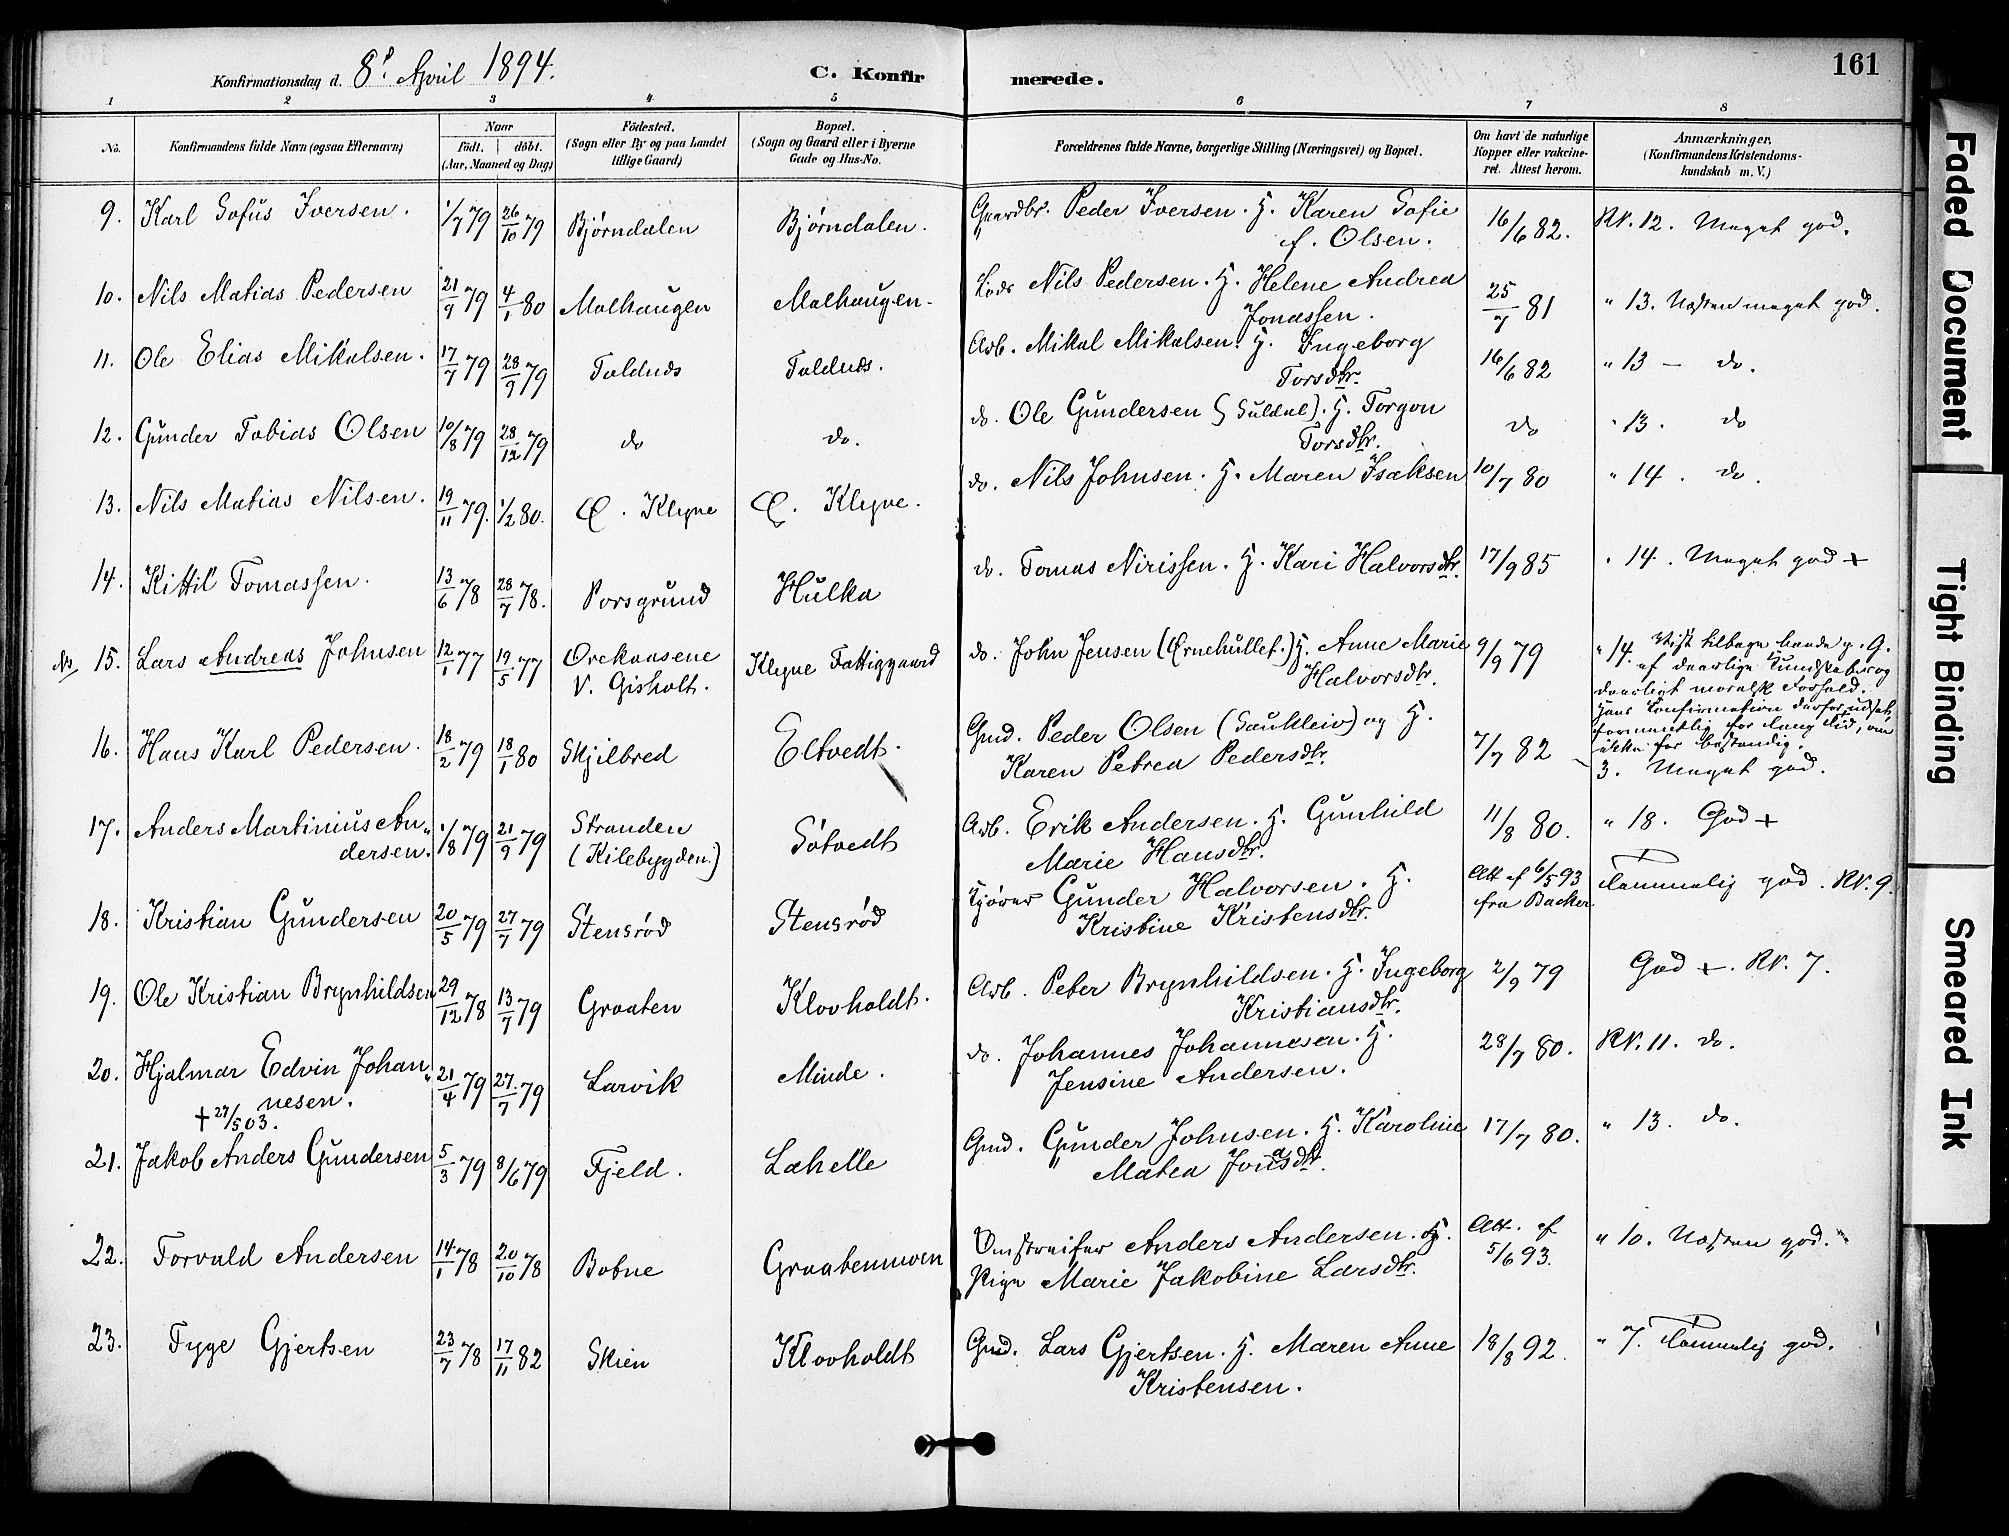 161
Konfirmationsdag d. 8de April 1894.
C. Konfir merede.
1 2 3 4 5 6 7 8
No. Konfirmandens fulde Navn (ogsaa Efternavn) Naar født. døbt. (Aar, Maaned og Dag) Fødested. (Sogn eller By og paa Landet tillige Gaard) Bopæl. (Sogn og Gaard eller i Byerne Gade og Hus-No.) Forældrenes fulde Navne, borgerlige Stilling (Næringsvei) og Bopæl. Om havt de naturlige Kopper eller vakcineret. Attest herom. Anmærkninger, (Konfirmandens Kristendomskundskab m. V.)
9. Karl Sofus Iversen. 1/7 79 26/10 79 Bjørndalen Bjørndalen. Gaardbr. Peder Iversen. H. Karen Sofie f. Olsen. 16/6 82. Nr. 12. Meget god.
10. Nils Matias Pedersen 21/9 79 4/1 80 Malhaugen Malhaugen. Lods Nils Pedersen. H. Helene Andrea Jonassen. 25/7 81 " 13. Næsten meget god.
11. Ole Elias Mikalsen. 17/7 79 28/9 79 Taldnes Taldnes. Arb. Mikal Mikalsen. H. Ingeborg Torsdtr. 16/6 82 " 13 – do.
12. Gunder Tobias Olsen 10/8 79 28/12 79 do do. do. Ole Gundersen (Suldal). H. Torgon Torsdtr. do " 13. do
13. Nils Matias Nilsen. 19/11 79. 1/2 80. Ø. Klyve Ø. Klyve. do. Nils Johnsen. H. Maren Isaksen 10/7 80 " 14. do.
14. Kittil Tomassen. 13/6 78 28/7 78. Porsgrund Hulka do. Tomas Nirissen. H. Kari Halvorsdtr. 17/9 85 " 14. Meget god +
15. Lars Andreas Johnsen 12/1 77 19/5 77 Orekaasene V. Gisholt. Klyve Fattiggaard do. John Jensen (Ørnehullet.) H. Anne Marie Halvorsdtr. 9/9 79 " 14. Vist tilbage baade p. G. af daarlige Kundskaber og daarligt moralsk Forhold. Hans Konfirmation derfor udsat formentlig for lang Tid, om ikke for bestandig.
16. Hans Karl Pedersen. 18/2 79 18/1 80 Skjilbred Eltvedt. Gmd. Peder Olsen (Saukleiv) og H. Karen Petrea Pedersdtr. 7/7 82 3. Meget god.
17. Anders Martinius Andersen. 1/8 79 21/9 79 Stranden (Kilebygden.) Søtvedt Arb. Erik Andersen. H. Gunhild Marie Hansdtr. 11/8 80. " 18. God +
18. Kristian Gundersen 20/5 79 27/7 79 Stensrød Stensrød Kjører Gunder Halvorsen. H. Kristine Kristensdtr. Att af 6/5 93 fra Backer. Temmelig god. Nr. 9.
19. Ole Kristian Brynhildsen 29/12 78 13/7 79 Graaten Klovholdt. Arb. Peter Brynhildsen. H. Ingeborg Kristiansdtr. 2/9 79 God +. Nr. 7.
20. Hjalmar Edvin Johannesen. 21/4 79 27/7 79 Larvik Minde. do. Johannes Johannesen. H. Jensine Andersen. 28/7 80. Nr. 11. do.
† 27/5 03.
21. Jakob Anders Gundersen 5/3 79 8/6 79 Fjeld. Lahelle Gmd. Gunder Johnsen. H. Karoline Matea Jonasdtr. 17/7 80. " 13. do.
22. Torvald Andersen 14/1 78 20/10 78 Botne Graatenmoen Omstreifer Anders Andersen. og Pige Marie Jakobine Larsdtr. Att. af 5/6 93. " 10. Næsten god.
23. Tyge Gjertsen 23/7 78 17/11 82 Skien Klovholdt Gmd. Lars Gjertsen. H. Maren Anne Kristensen. 18/8 92. " 7. Temmelig god.
Faded Document
Tight Binding
Smeared Ink